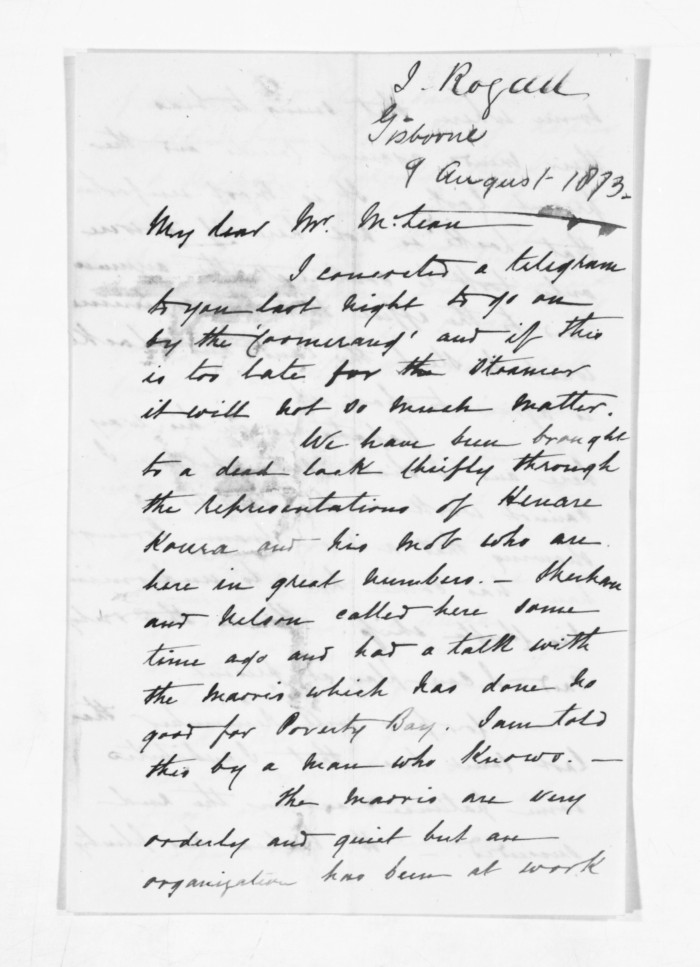 J. Rogan
Gisborne
9 August 1873.
My dear Mr. McLean
I concocted a telegram
to you last night to go on
by the 'Boomerang' and if this
is too late for the steamer
it will not so much matter.
We have been brought
to a dead lock chiefly through
the representations of Henare
and his mob who are
here in great numbers. — Sheehan
and Nelson called here some
time ago and had a talk with
the Maoris which has done no
good for Poverty Bay. I am told
this by a man who knows. —
The Maoris are very
orderly and quiet but an
organization has been at work